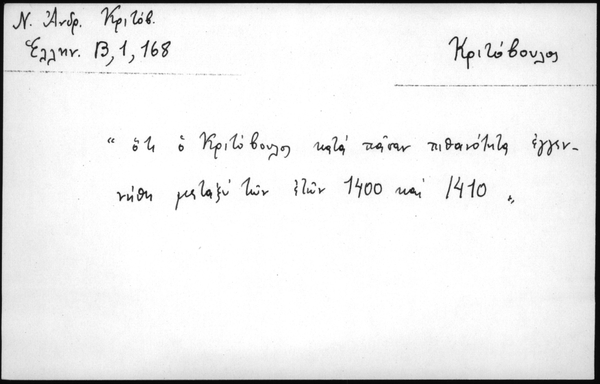 Ν. Ἀνδρ. Κριτόβ.
Ἑλλην. Β, 1, 168
Κριτόβουλος
“ ὅτι ὁ Κριτόβουλος κατά πᾶσαν πιθανότητα ἐγγεν-
νήθη μεταξύ τῶν ἐτῶν 1400 καί 1410 „